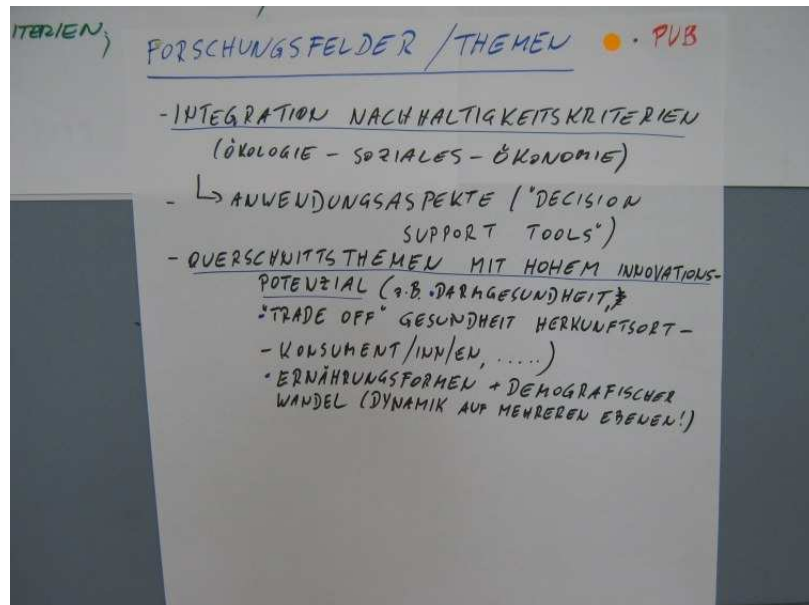 ITERIEN;
FORSCHUNGSFELDER / THEMEN • PUB
- INTEGRATION NACHHALTIGKEITSKRITERIEN
(ÖKOLOGIE - SOZIALES - ÖKONOMIE)
- ↳ ANWENDUNGSASPEKTE ("DECISION
SUPPORT TOOLS")
- QUERSCHNITTSTHEMEN MIT HOHEM INNOVATIONS-
POTENZIAL (z.B. • DARMGESUNDHEIT,
• "TRADE OFF" GESUNDHEIT HERKUNFTSORT -
- KONSUMENT/INN/EN, .....)
• ERNÄHRUNGSFORMEN + DEMOGRAFISCHER
WANDEL (DYNAMIK AUF MEHREREN EBENEN!)